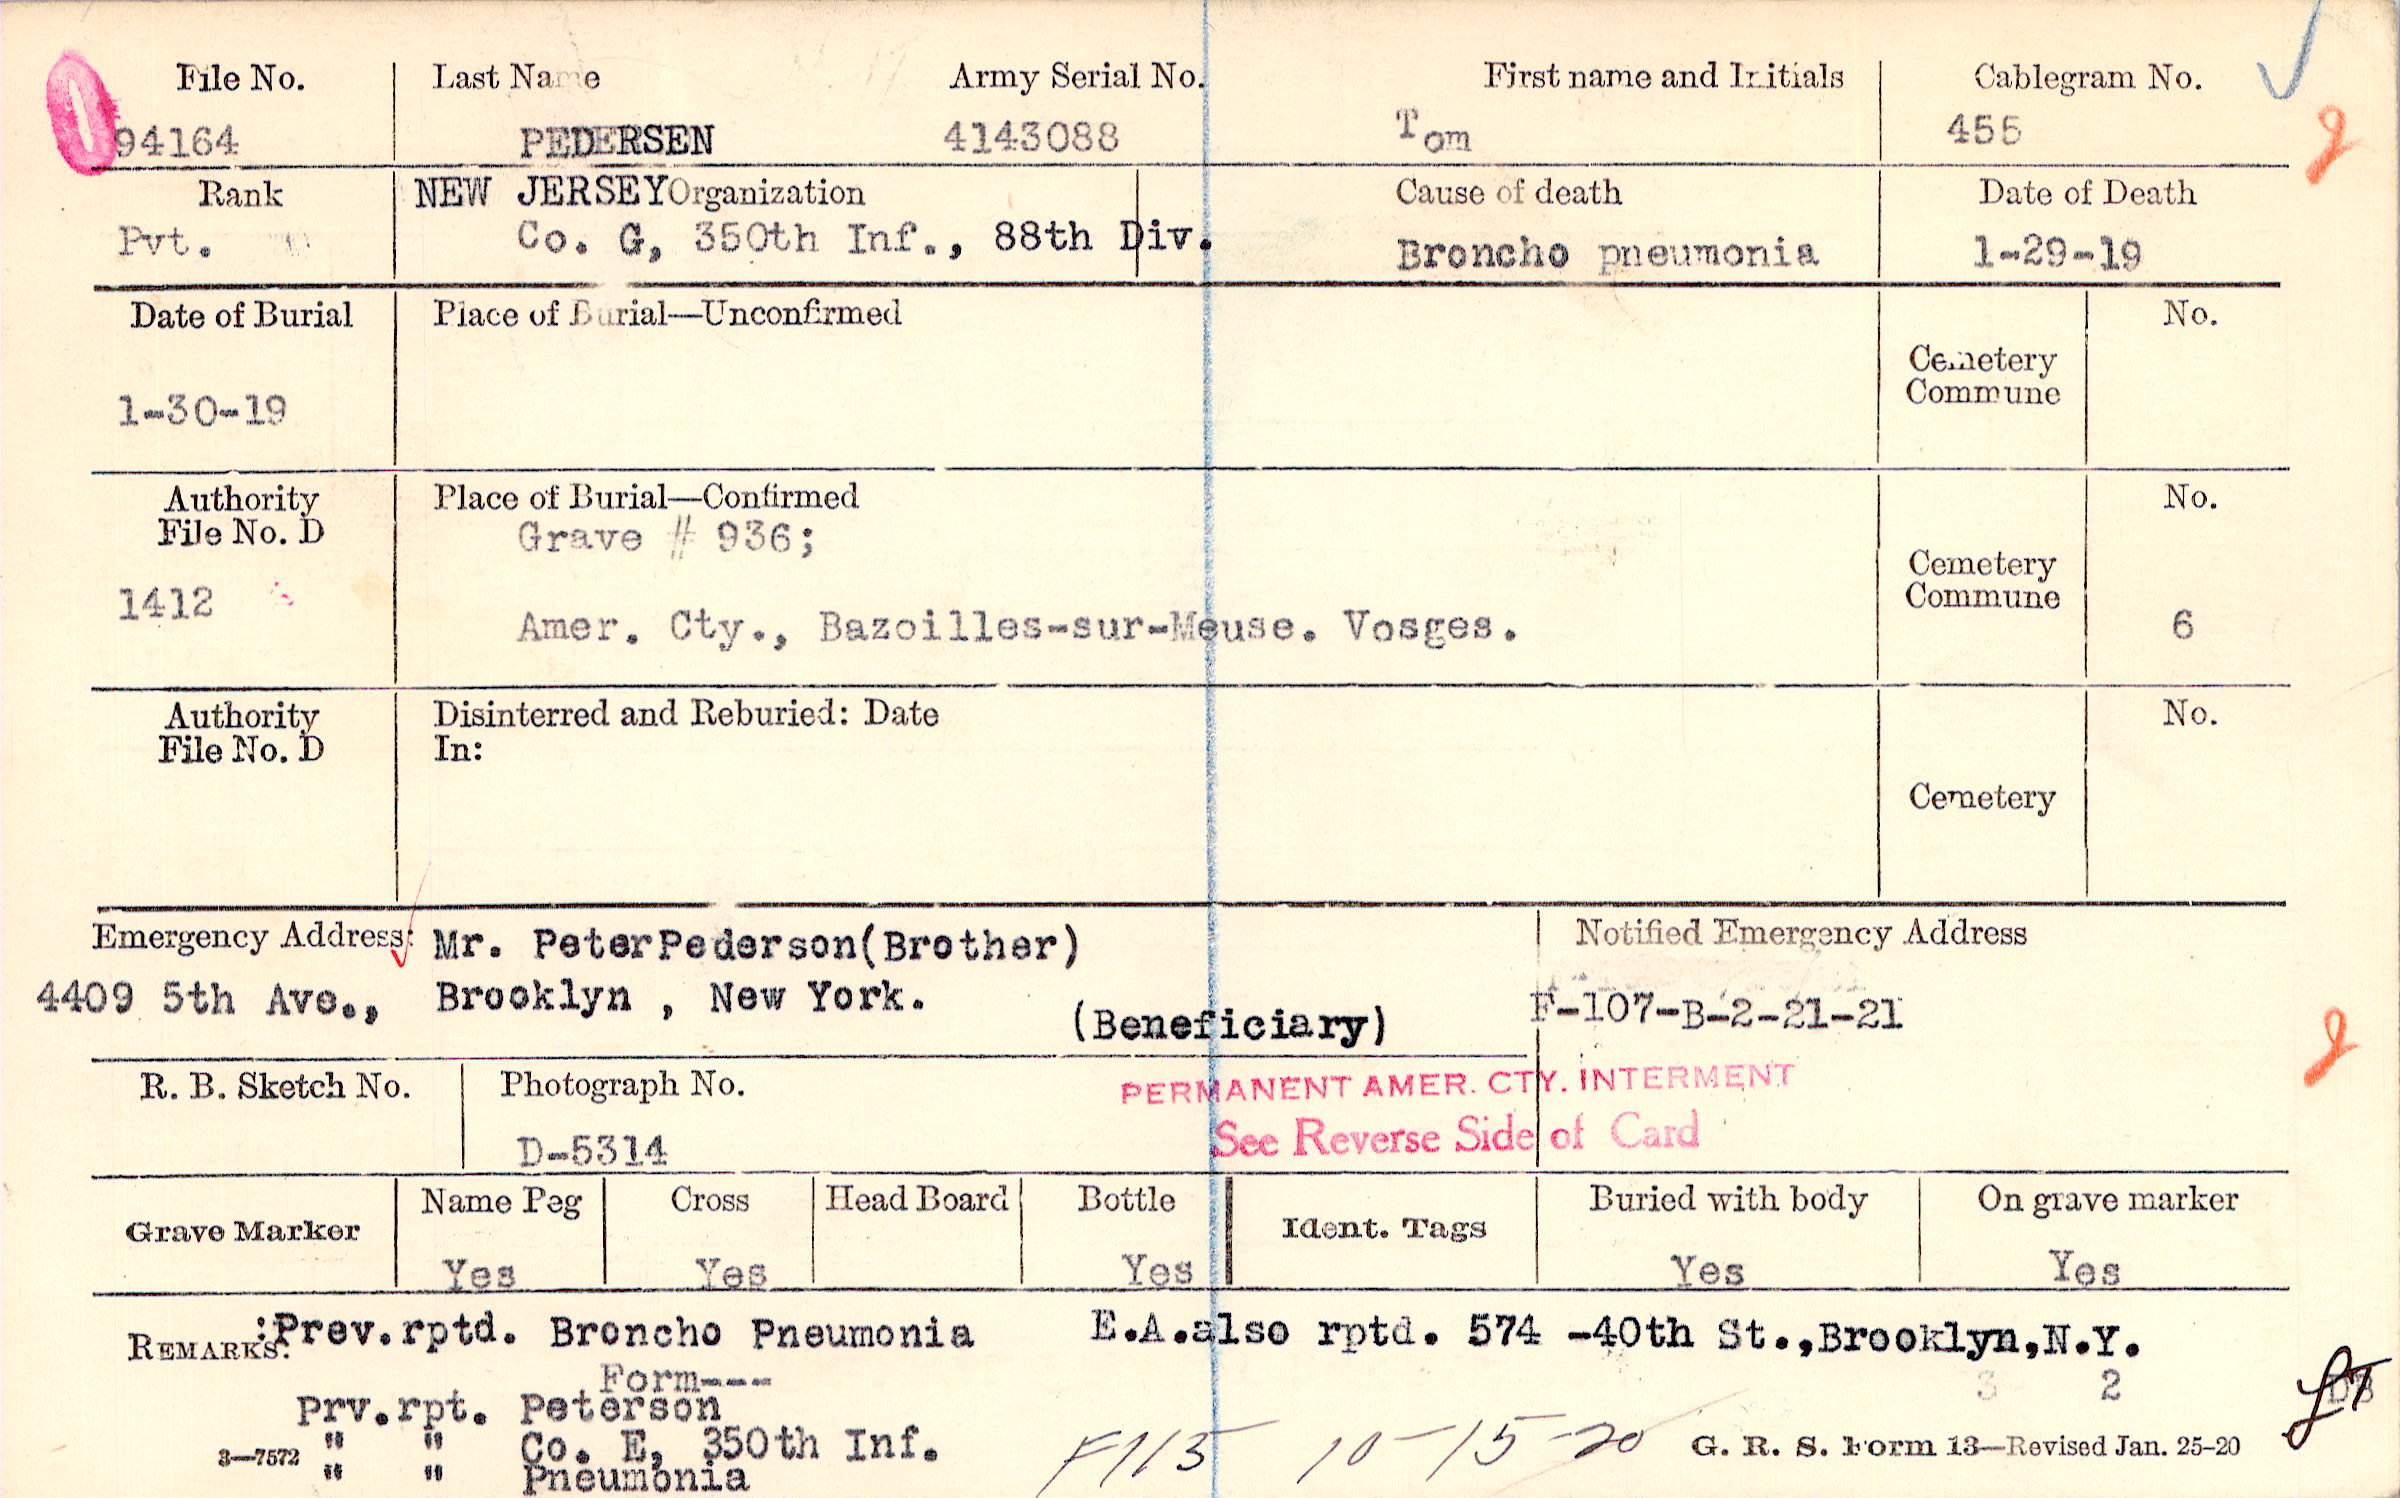 File No. Last Name Army Serial No. First name and Initials Cablegram No.
94164 PEDERSEN 4143088 Tom 455
Rank NEW JERSEY Organization Cause of death Date of Death
Pvt. Co. G, 350th Inf., 88th Div. Broncho pneumonia 1-29-19
Date of Burial Place of Burial—Unconfirmed No.
Cemetery
Commune
1-30-19
Authority Place of Burial—Confirmed No.
File No. D Grave # 936;
Cemetery
Commune
1412 Amer. Cty., Bazoilles-sur-Meuse. Vosges. 6
Authority Disinterred and Reburied: Date No.
File No. D In:
Cemetery
Emergency Address: Mr. PeterPederson(Brother) Notified Emergency Address
4409 5th Ave., Brooklyn , New York. (Beneficiary) F-107-B-2-21-21
R. B. Sketch No. Photograph No. PERMANENT AMER. CTY. INTERMENT
D-5314 See Reverse Side of Card
Grave Marker Name Peg Cross Head Board Bottle Ident. Tags Buried with body On grave marker
Yes Yes Yes Yes Yes
REMARKS: :Prev.rptd. Broncho Pneumonia E.A.also rptd. 574 -40th St.,Brooklyn,N.Y.
Form---
3 2
Prv.rpt. Peterson
" " Co. E, 350th Inf.
3—7572 F113 10-15-20 G. R. S. Form 13—Revised Jan. 25-20
" " Pneumonia